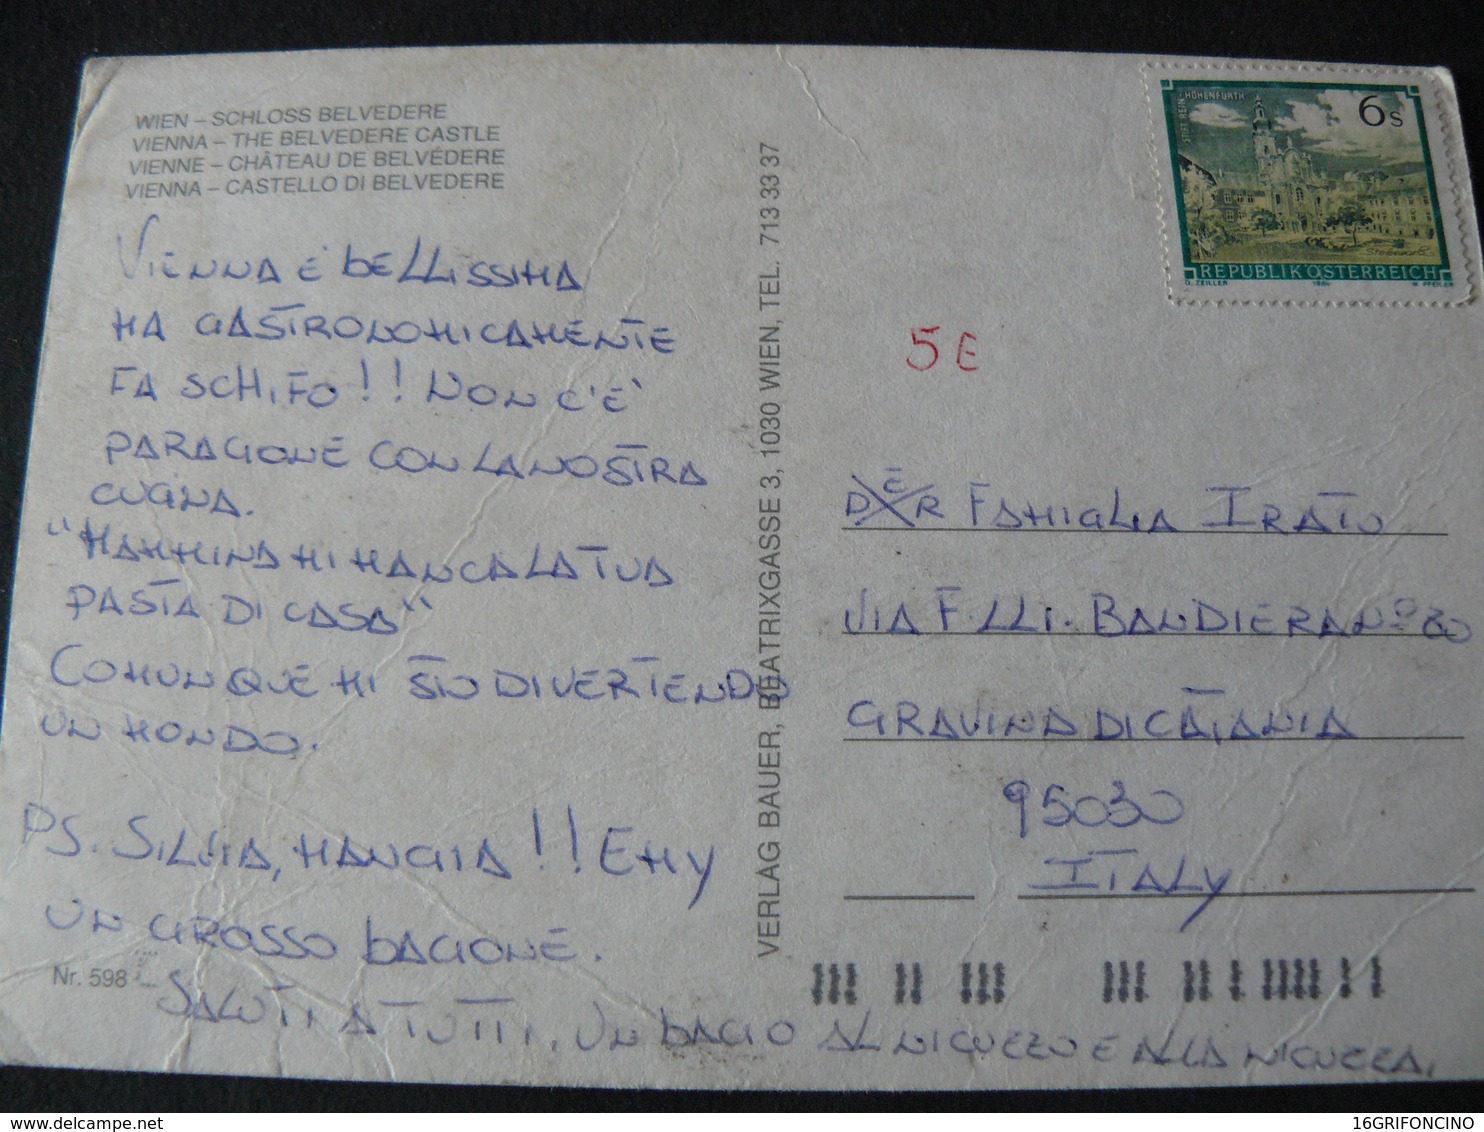 WIEN – SCHLOSS BELVEDERE
VIENNA – THE BELVEDERE CASTLE
VIENNE – CHÂTEAU DE BELVÉDERE
VIENNA – CASTELLO DI BELVEDERE
VIENNA E' BELLISSIMA
MA GASTRONOMICAMENTE
FA SCHIFO!! NON C'E'
PARAGONE CON LA NOSTRA
CUCINA.
"MAMMINA MI MANCA LA TUA
PASTA DI CASA"
COMUNQUE MI STO DIVERTENDO
UN MONDO.
PS. SILVIA, MANGIA!! EMY
UN GROSSO BACIONE.
SALUTI A TUTTI. UN BACIO AL NICUZZO E ALLA NICUZZA.
Nr. 598
VERLAG BAUER, BEATRIXGASSE 3, 1030 WIEN, TEL. 713 33 37
STIFT REIN-HOHENFURTH
6s
REPUBLIK ÖSTERREICH
O. ZEILLER 1984 W. PFEILER
5E
FAMIGLIA IRATO
VIA F.LLI. BANDIERA N° 30
GRAVINA DI CATANIA
95030
ITALY
16GRIFONCINO